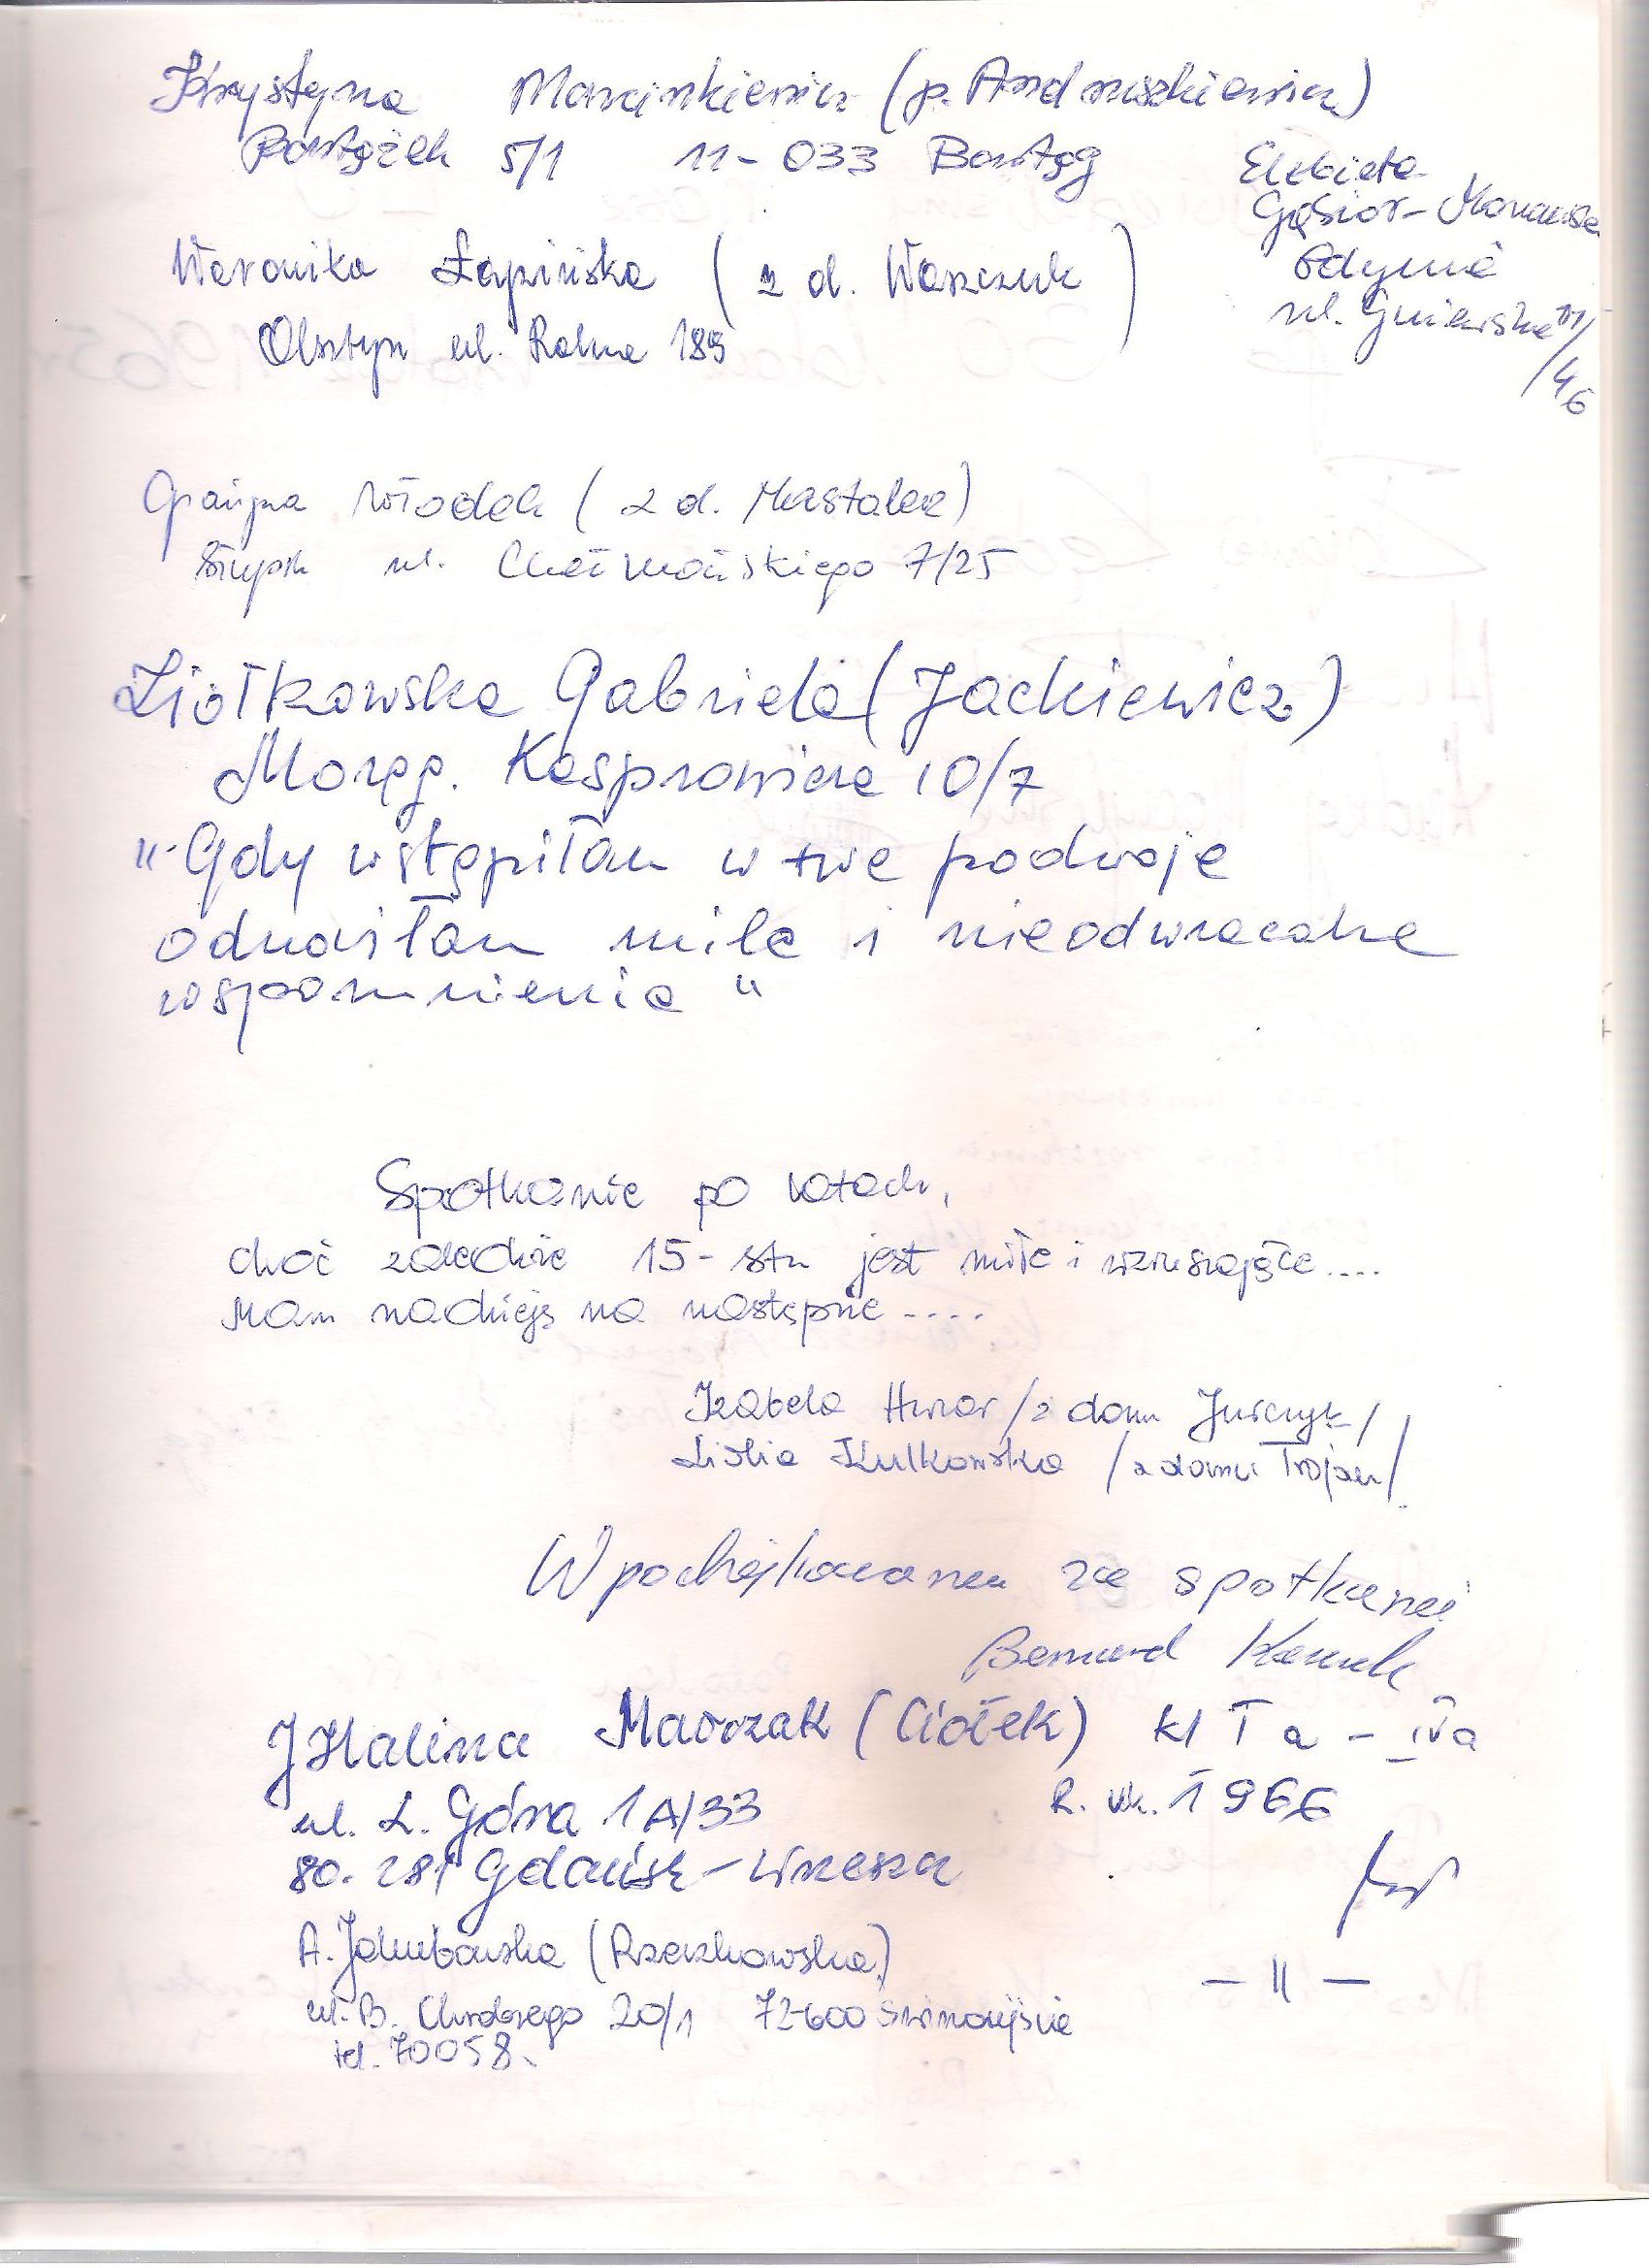 Krystyna Marcinkiewicz (p. Andruszkiewicz)
Bartążek 5/1 11-033 Bartąg
Elżbieta
Gąsior-
Gdynia
ul. Gniewska
/46
Weronika Łapińska (z d. Waszczuk)
Olsztyn ul. Rolna 189
Grażyna Włodek (z d. Mastalerz)
Słupsk ul. Chełmońskiego 7/25
Ziółkowska Gabriela (Jackiewicz)
Morąg. Kasprowicza 10/7
"Gdy wstąpiłam w twe podwoje
odnosiłam miłe i nieodwracalne
wspomnienia"
Spotkanie po latach,
choć zaledwie 15-stu jest miłe i wzruszające....
Mam nadzieję na następne ....
Izabela Hwzar /z domu Jurczyk/
Lidia Kulkowska /z domu Trojan/
W za spotkanie
Bernard
Halina Marczak (Ciołek) kl I a - IVa
ul. L. Góra 1A/33 R. uk. 1966
80-281 Gdańsk-Wrzeszcz
A. Jakubowska (Rzeszkowska)
ul. B. Chrobrego 20/1 72-600 Świnoujście
tel. 70058.
- II -